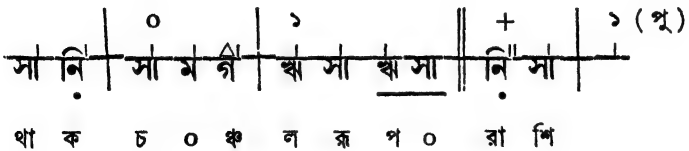 ০ ১ + ১ ( পু )
সা নি | সা ম গ | ঋ সা ঋ সা || নি সা |
থা ক চ ০ ঞ্চ ল রূ প ০ রা শি